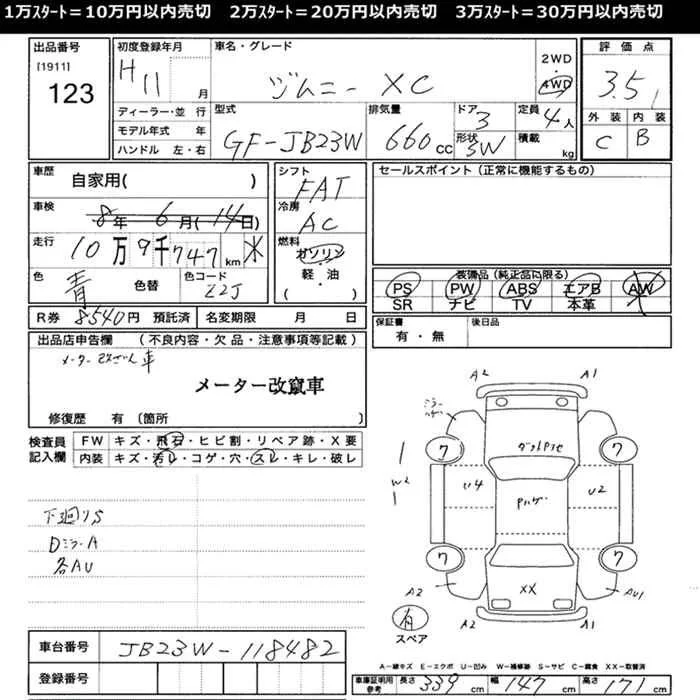 1万ｽﾀｰﾄ＝10万円以内売切　2万ｽﾀｰﾄ＝20万円以内売切　3万ｽﾀｰﾄ＝30万円以内売切
出品番号
[1911]
123
初度登録年月
H11 月
車名・グレード
ジムニー XC
2WD
4WD
評価点
3.5
外装 内装
C B
ディーラー・並行
モデル年式 年
ハンドル 左・右
型式
GF-JB23W
排気量
660cc
ドア
3
形状
SW
定員
4人
積載
kg
車歴
自家用( )
車検
8年 6月(14日)
走行
10万9千747km
色
青
色替
色コード
Z2J
シフト
FAT
冷房
AC
燃料
ガソリン
軽・油
( )
セールスポイント（正常に機能するもの）
装備品（純正品に限る）
PS PW ABS エアB AW
SR ナビ TV 本革
R券 8540円 預託済
名変期限 月 日
保証書
有・無
後日品
出品店申告欄 （不良内容・欠品・注意事項等記載）
メーター改ざん車
メーター改竄車
修復歴 有〔箇所 〕
検査員
記入欄
FW キズ・飛石・ヒビ割・リペア跡・X要
内装 キズ・汚レ・コゲ・穴・スレ・キレ・破レ
下廻りS
Dミラー A
各AU
A2 A1
ミラー
7 7
W2
U4
U2
7 7
XX
A2 A1
AU1
有
スペア
車台番号
JB23W-118482
登録番号
A－線キズ E－エクボ U－凹み W－補修跡 S－サビ C－腐食 XX－取替済
車庫証明用
参考
長さ 339cm 幅 147cm 高さ 171cm